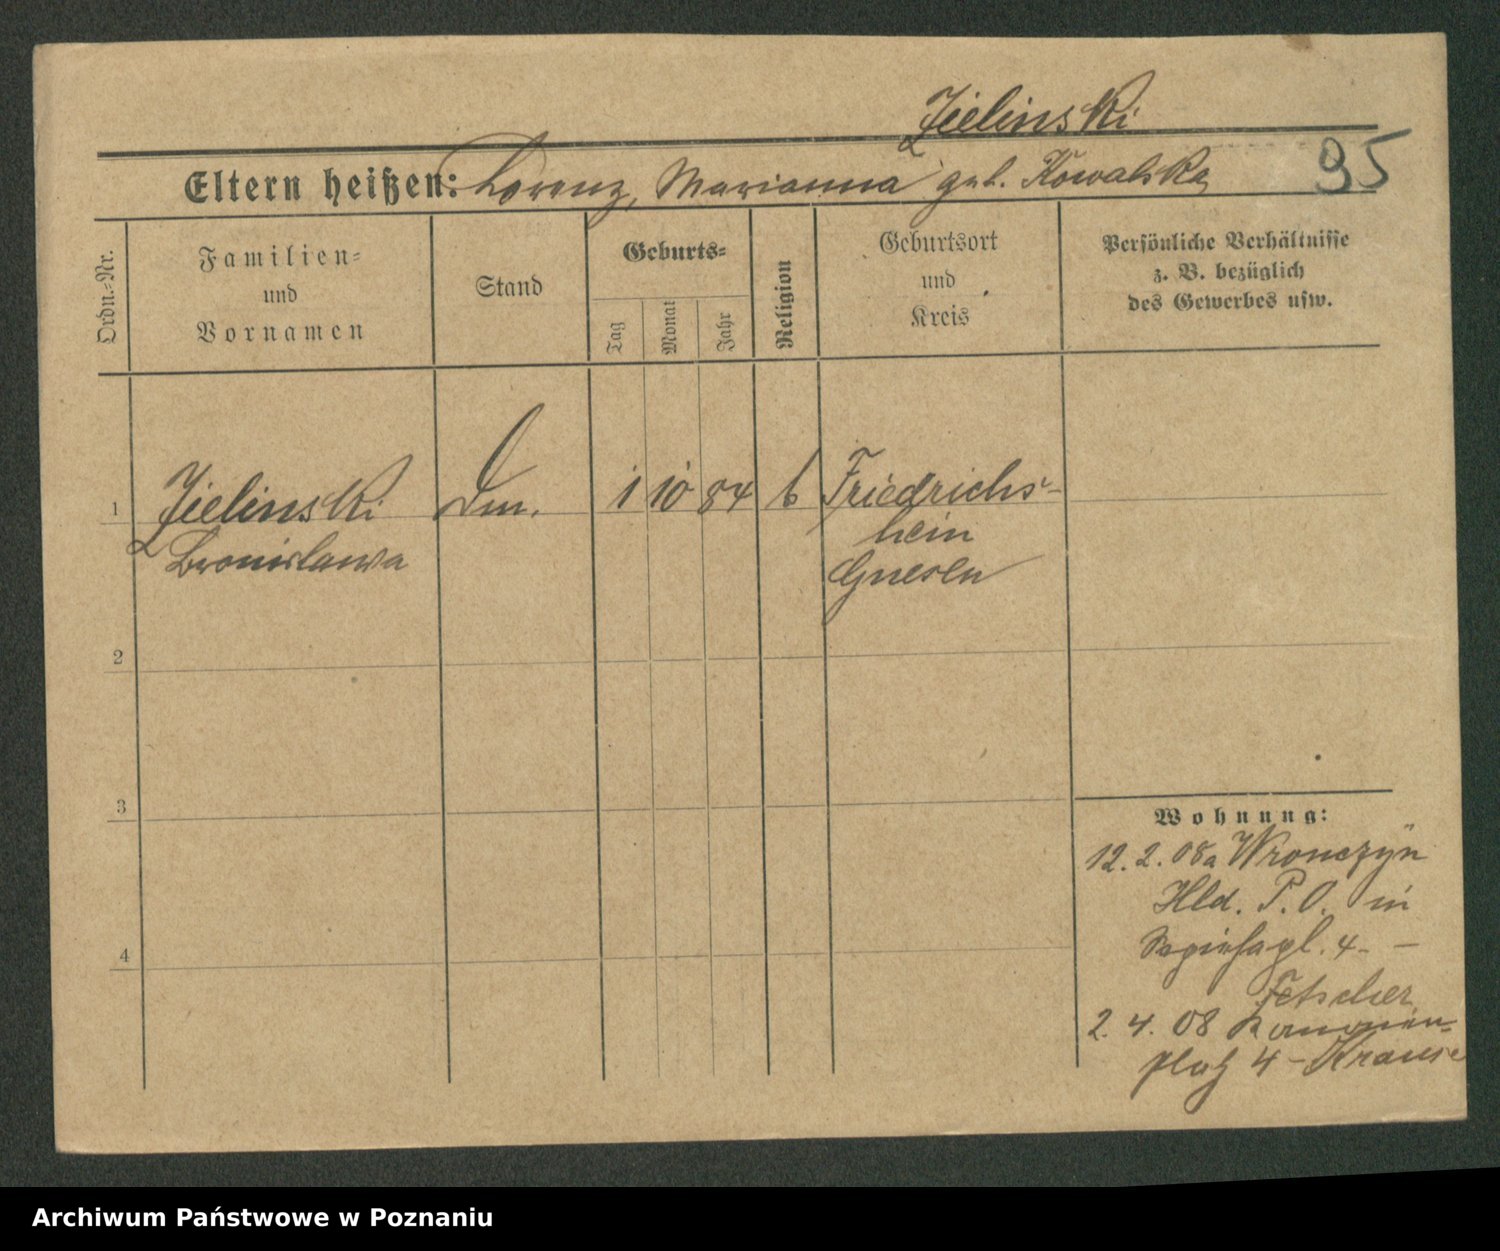 Zielinski
Eltern heißen: Lorenz, Marianna geb. Kowalska
95
Ordn.-Nr.
Familien-
und
Vornamen
Stand
Geburts-
Tag
Monat
Jahr
Religion
Geburtsort
und
Kreis
Persönliche Verhältnisse
z. B. bezüglich
des Gewerbes usw.
1
Zielinski
Bronislawa
1 10 84
Friedrichs-
hein
Gnesen
2
3
4
Wohnung:
12. 2. 08 a Wronczyn
Hld. P. O. in
Sapiehapl. 4. –
Fetscher
2. 4. 08 Kanonen-
platz 4 – Krause
Archiwum Państwowe w Poznaniu